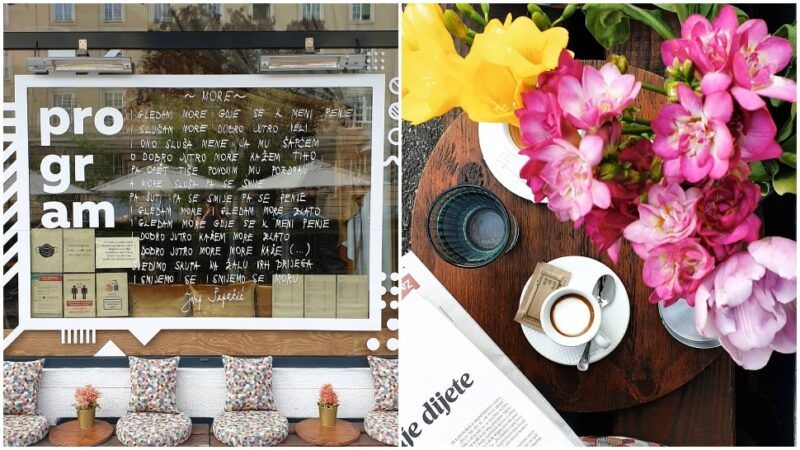 pro
gr
am
~ MORE ~
I GLEDAM MORE GDJE SE K MENI PENJE
I SLUŠAM MORE DOBRO JUTRO VELI
I ONO SLUŠA MENE I JA MU ŠAPĆEM
O DOBRO JUTRO MORE KAŽEM TIHO
PA OPET TIŠE PONOVIM MU POZDRAV
A MORE SLUŠA PA SE SMIJE
PA ŠUTI PA SE SMIJE PA SE PENJE
I GLEDAM MORE I GLEDAM MORE ZLATO
I GLEDAM MORE GDJE SE K MENI PENJE
I DOBRO JUTRO KAŽEM MORE ZLATO
I DOBRO JUTRO MORE MORE KAŽE (...)
SJEDIMO SKUPA NA ŽALU VRH PRIJEGA
I SMIJEMO SE I SMIJEMO SE MORU
je dijete